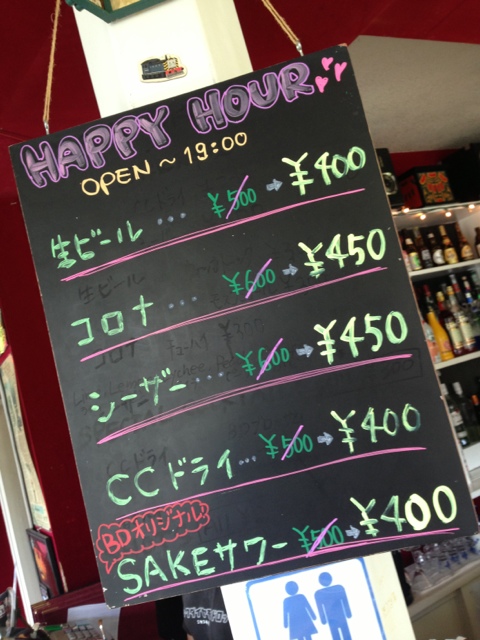 HAPPY HOUR
OPEN~19:00
生ビール ... ¥500 → ¥400
コロナ ... ¥600 → ¥450
シーザー... ¥600 → ¥450
CCドライ... ¥500 → ¥400
BDオリジナル
SAKEサワー ¥500 → ¥400